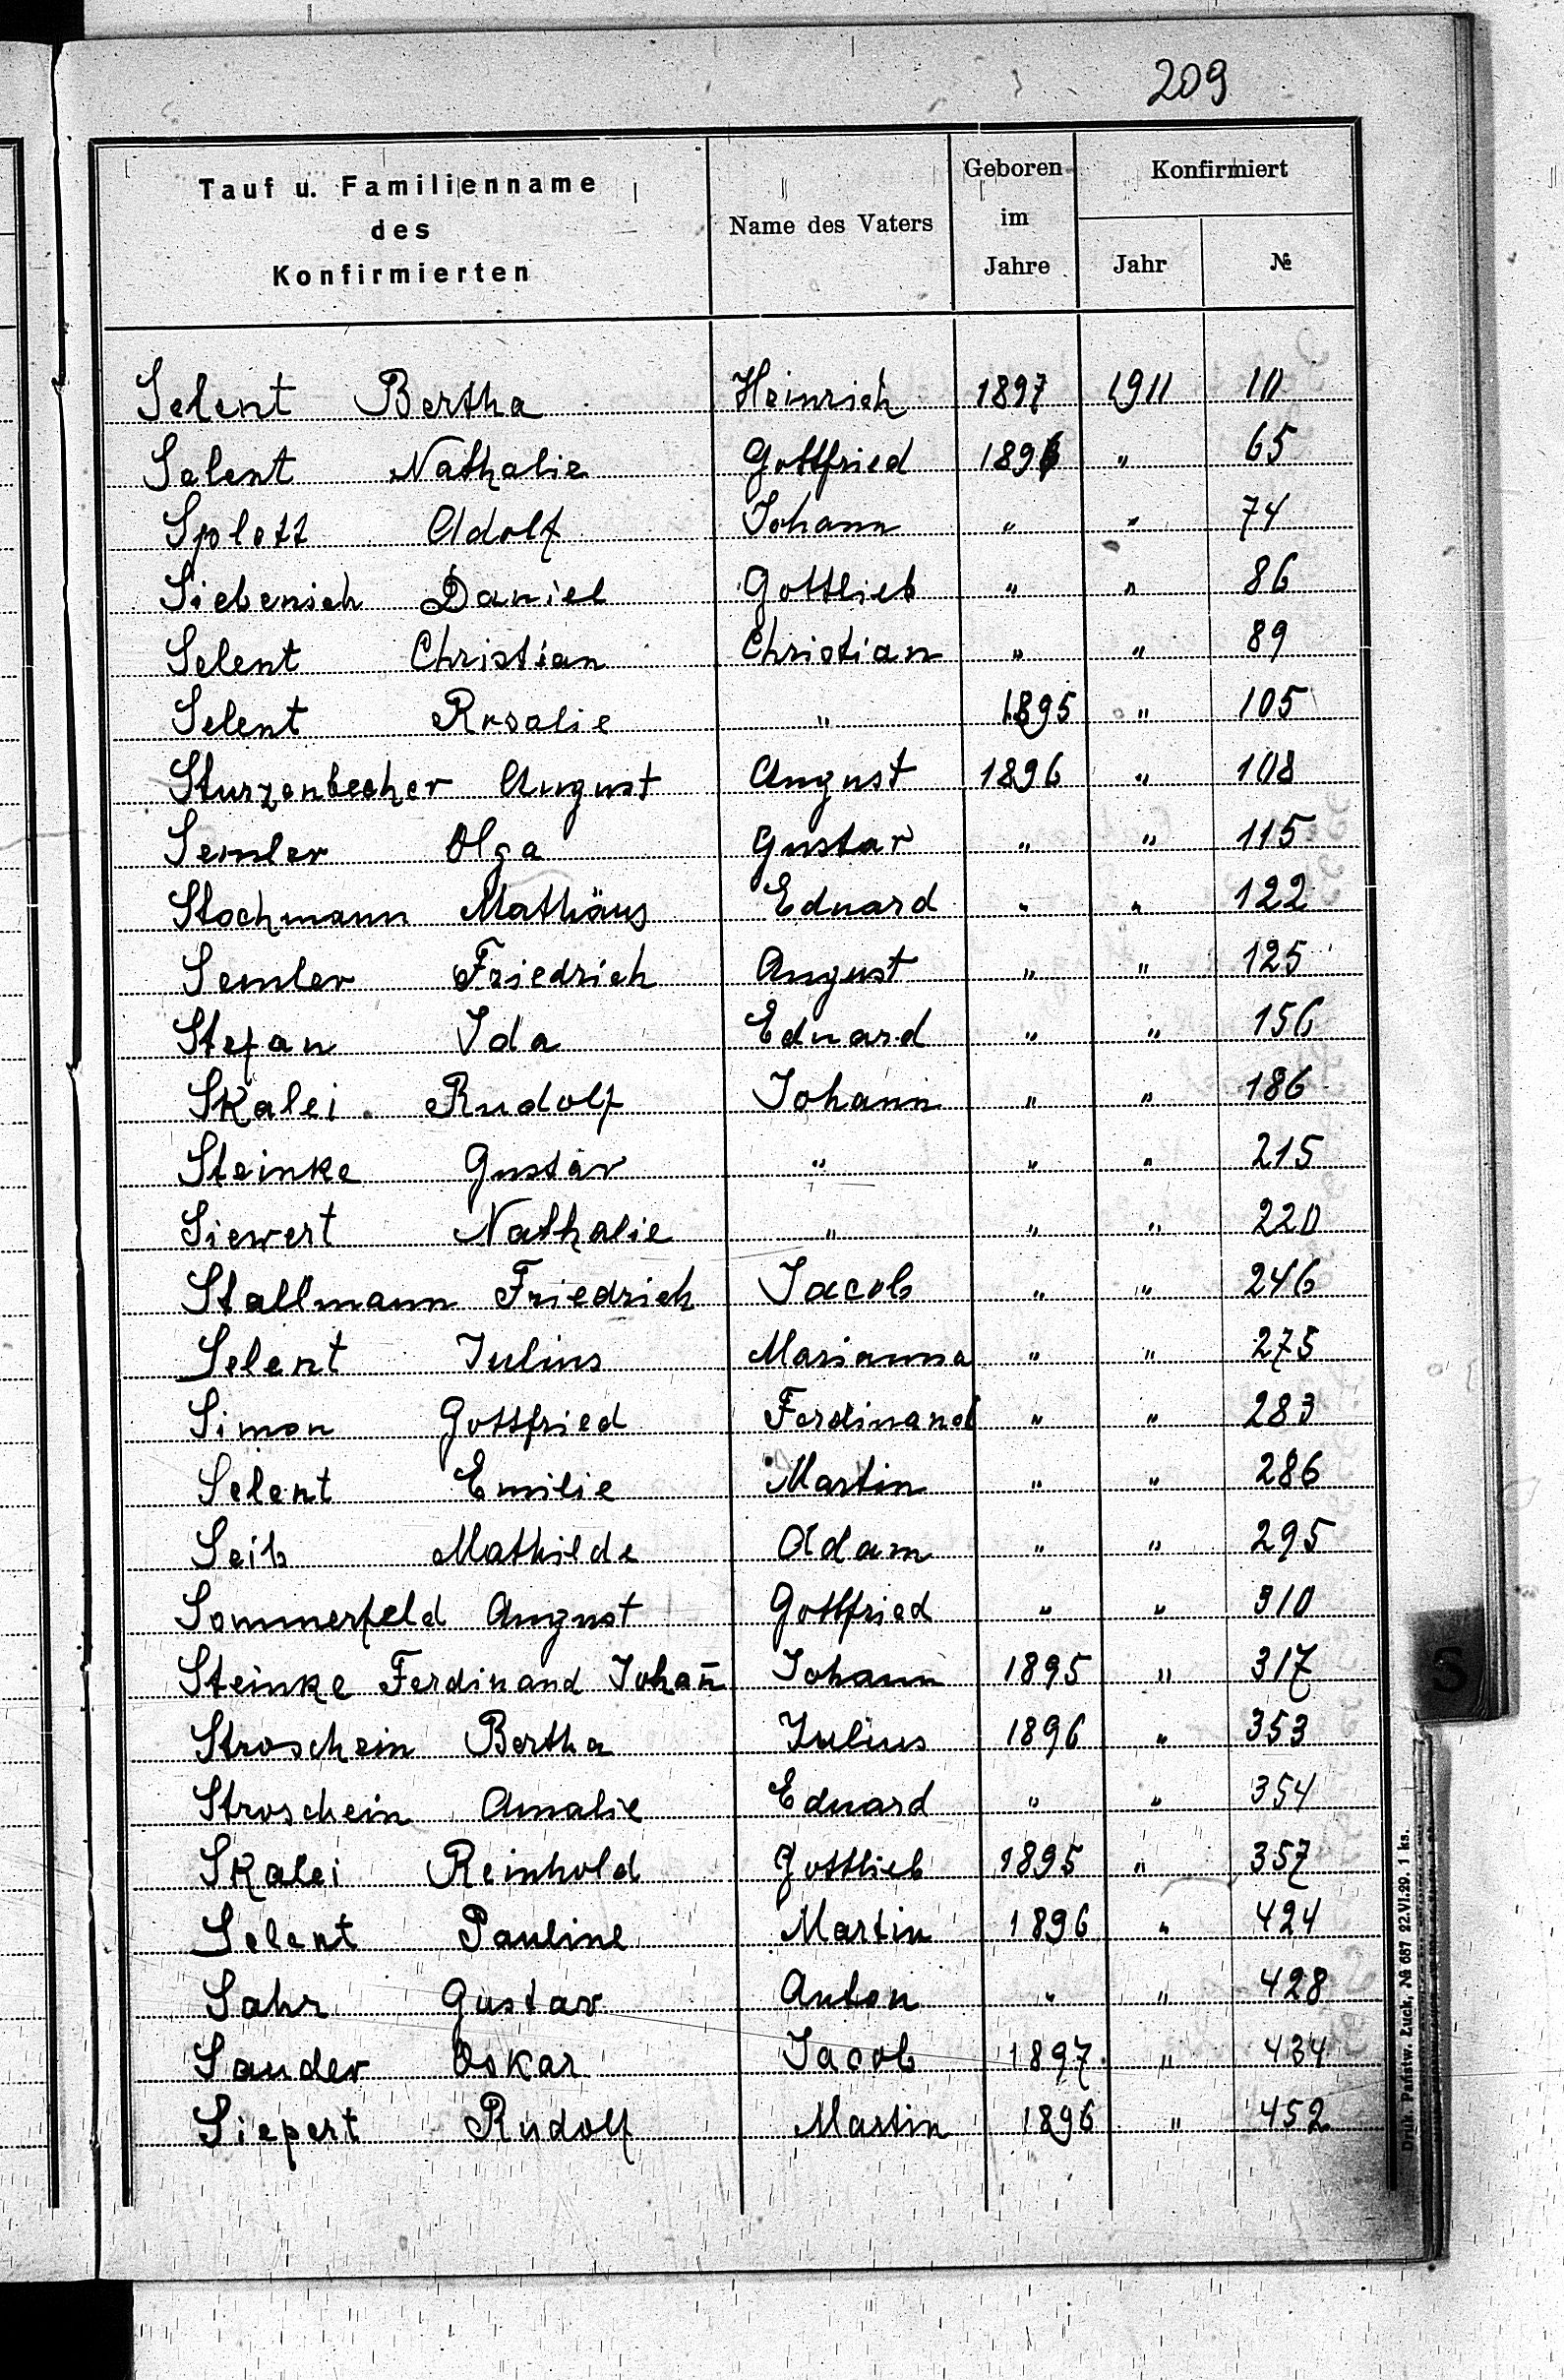 209
Tauf u. Familienname des Konfirmierten | Name des Vaters | Geboren im Jahre | Konfirmiert Jahr | №
Selent Bertha Heinrich 1897 1911 10
Selent Nathalie Gottfried 1896 " 65
Splett Adolf Johann " " 74
Siebenich Daniel Gottlieb " " 86
Selent Christian Christian " " 89
Selent Rosalie " 1895 " 105
Sturzenbecher August August 1896 " 108
Semler Olga Gustav " " 115
Stochmann Mathäus Eduard " " 122
Semler Friedrich August " " 125
Stefan Ida Eduard " " 156
Skalei Rudolf Johann " " 186
Steinke Gustav " " " 215
Siewert Nathalie " " " 220
Stallmann Friedrich Jacob " " 246
Selent Julius Marianna " " 275
Simon Gottfried Ferdinand " " 283
Selent Emilie Martin " " 286
Seib Mathilde Adam " " 295
Sommerfeld August Gottfried " " 310
Steinke Ferdinand Johan̄ Johann 1895 " 317
Stroschein Bertha Julius 1896 " 353
Stroschein Amalie Eduard " " 354
Skalei Reinhold Gottlieb 1895 " 357
Selent Pauline Martin 1896 " 424
Sahr Gustav Anton " " 428
Sauder Oskar Jacob 1897 " 434
Siepert Rudolf Martin 1896 " 452
S
Druk. Państw. Łuck, № 687 22.VI.29. 1 ks.